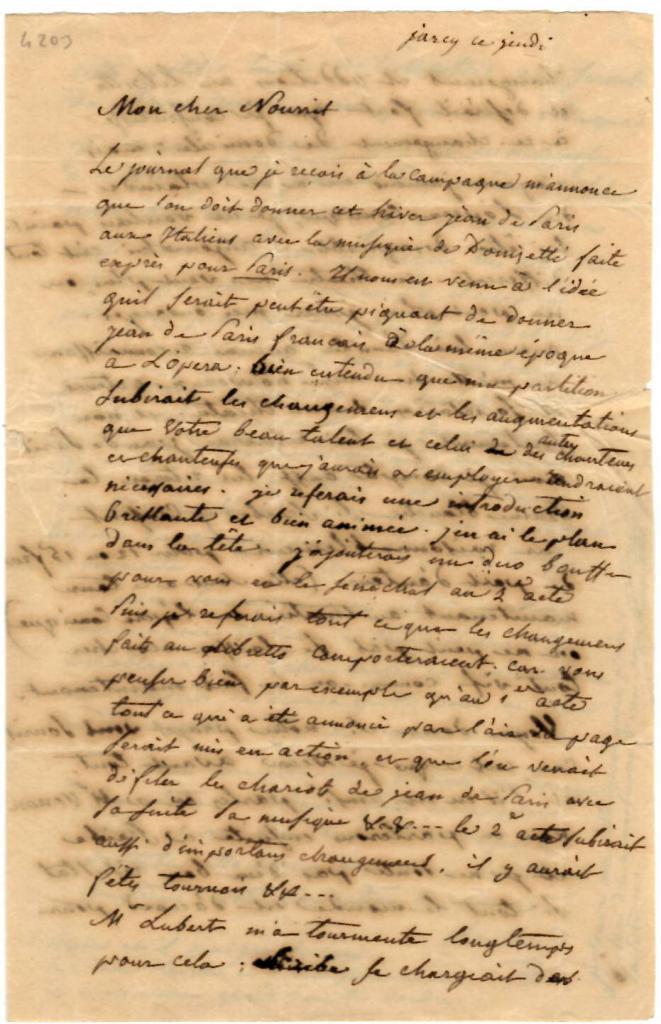 4205
jarcy ce jeudi
Mon cher Nourrit
Le journal que je recois à la campagne m'annonce
que l'on doit donner cet hiver jean de Paris
aux Italiens avec la musique de Donizetti faite
exprès pour Paris. Il nous est venu à l'idée
qu'il serait peutêtre piquant de donner
jean de Paris francais à la même époque
à L'opera; bien entendu que ma partition
subirait les changemens et les augmentations
que votre beau talent et celui des autres chanteurs
et chanteuses que j'aurais a employer rendraient
nécéssaires. je referais une introduction
brillante et bien animée. j'en ai le plan
dans la tête. j'ajouterais un duo bouffe
pour vous et le senechal au 2e acte
Puis je referais tout ce que les changemens
faits au libretto comporteraient. car vous
pensez bien par exemple qu'au 1er acte
tout ce qui a été annoncé par l'air du page
serait mis en action, et que l'on verrait
défiler les chariot de jean de Paris avec
sa suite sa musique &.&... le 2e acte subirait
aussi d'importans changemens. il y aurait
fêtes tournois &&...
Mr Lubert m'a tourmenté longtemps
pour cela; se chargeait des